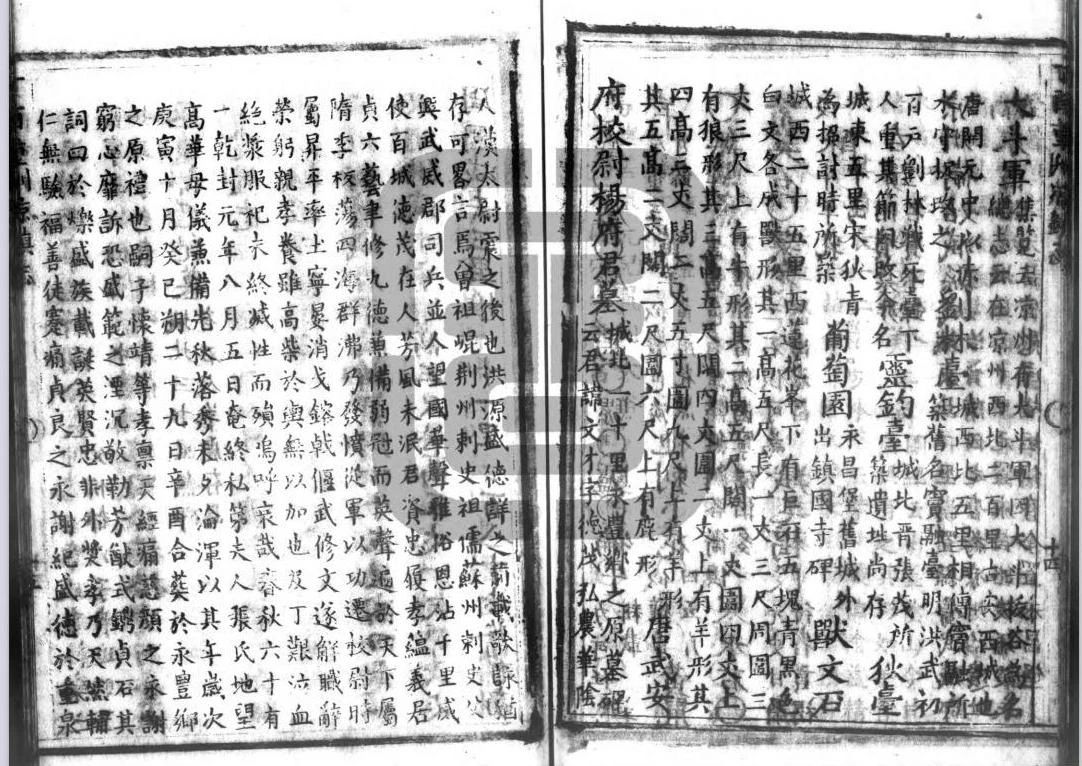 大斗軍集覽云凉州有赤斗軍因大斗拔谷為名
唐開元中以赤 總志云在凉州西北二百里古安西城也
水守捉改之劉林臺城西北五里相傳竇融所
築舊名竇融臺明洪武初
百戶劉林戰死臺下靈鈞臺城北晉張茂所
人重其節因改今名 築遺址尚存狄臺
城東五里宋狄青葡萄園永昌堡舊城外獸文石
為招討時所築 出鎮國寺碑
城西二十五里西蓮花峯下有巨石五塊青黑色
白文各成獸形其一高五尺長一丈三尺周圍三
丈三尺上有牛形其二高五尺闊一丈圍四丈上
有狼形其三高五尺闊四丈圍一丈上有羊形其
四高二丈闊二丈五寸圍九尺上有羊形
其五高二丈闊二尺圍六尺上有鹿形唐武安
府校尉楊府君墓城北二十里永豐鄉之原墓碑
云君諱文才字德茂弘農華陰
人漢太尉震之後也洪源盛德詳之前載歌詠猶
存可畧言焉曾祖崐荆州刺史祖儒蘇州刺史父
興武威郡司兵並人望國華聲雅俗恩沾千里威
使百城德茂在人芳風未泯君資忠履孝蘊義居
貞六藝聿修九德兼備弱冠而英聲遍於天下屬
隋季板蕩四海群沸乃發憤從軍以功遷校尉時
屬昇平率土寧晏消戈鎔戟偃武修文遂解職辭
榮躬親孝養雖高柴於輿無以加也及丁艱泣血
絕漿服祀六終滅性而殞嗚呼哀哉春秋六十有
一乾封元年八月五日奄終私第夫人張氏地望
高華母儀兼備光秋落秀未夕淪渾以其年歲次
庚寅十月癸巳朔二十九日辛酉合葬於永豐鄉
之原禮也嗣子懷靖等孝禀天經痛慈顏之永謝
窮心靡訴恐盛範之湮沉敬勒芳猷式鐫貞石其
詞曰於爍盛族載誕英賢忠非外奬孝乃天然輔
仁無驗福善徒蹇痛貞良之永謝紀盛德於重泉